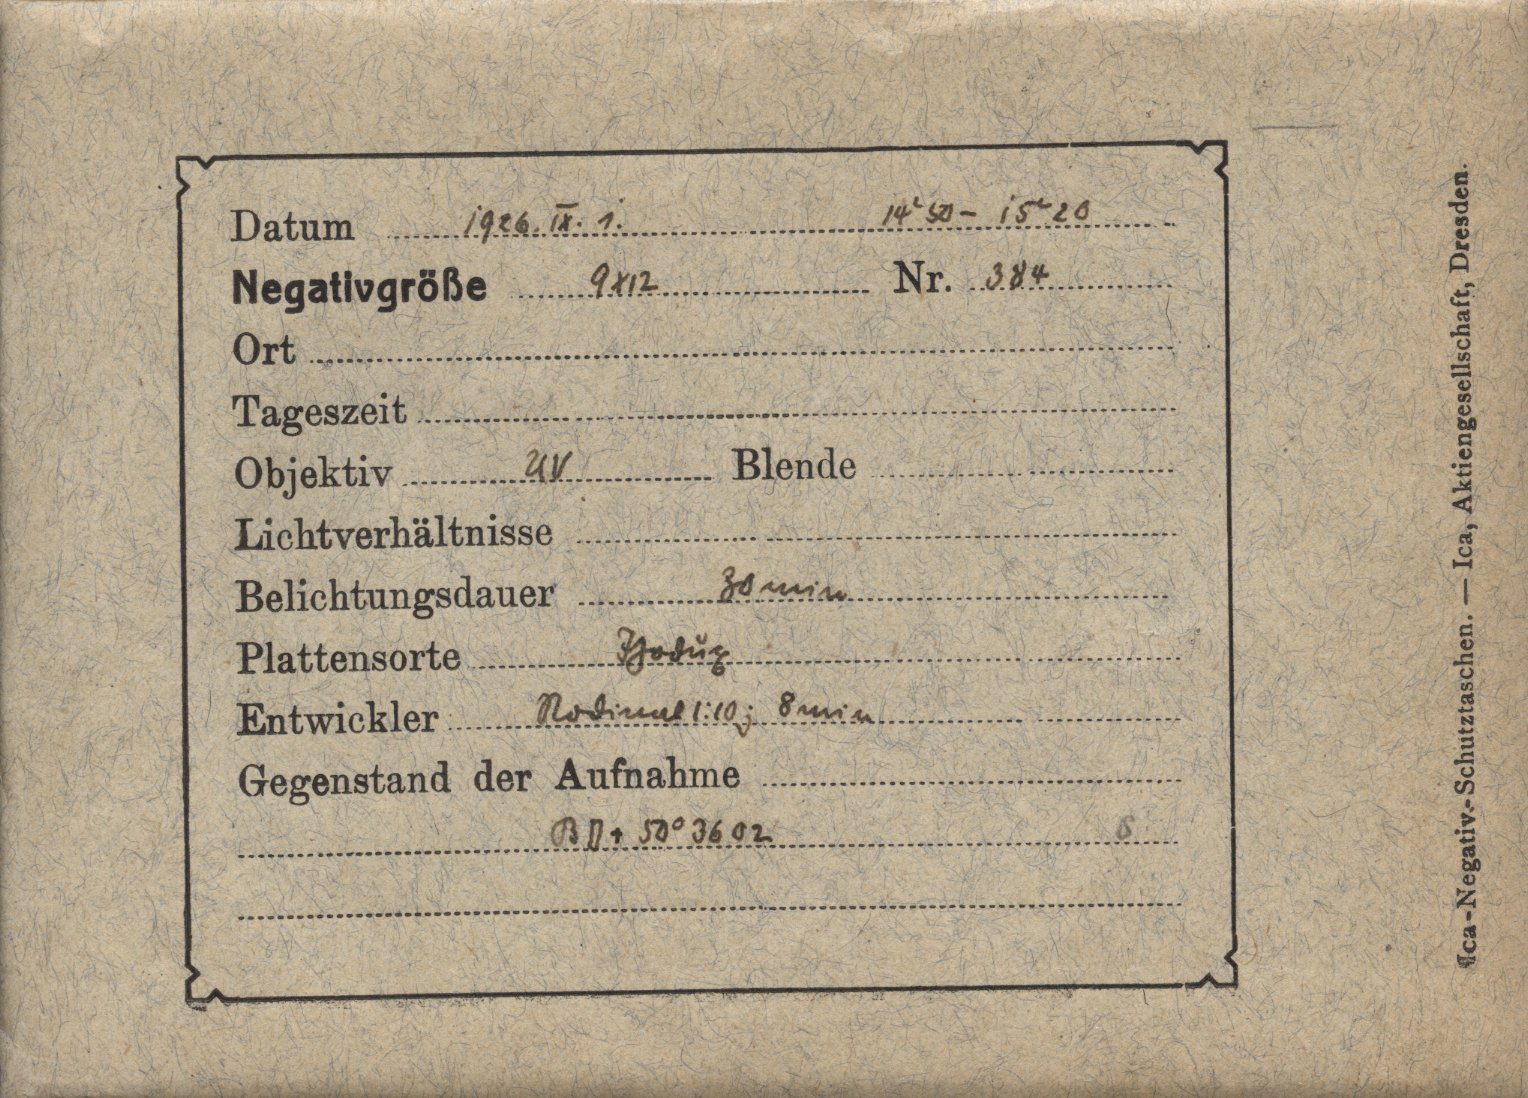 Datum 1926. IX. 1. 14ʰ50 – 15ʰ20
Negativgröße 9x12 Nr. 384
Ort
Tageszeit
Objektiv UV Blende
Lichtverhältnisse
Belichtungsdauer 30 min
Plattensorte
Entwickler Rodinal 1:10; 8 min
Gegenstand der Aufnahme
BD + 50° 3602
Ica-Negativ-Schutztaschen. — Ica, Aktiengesellschaft, Dresden.